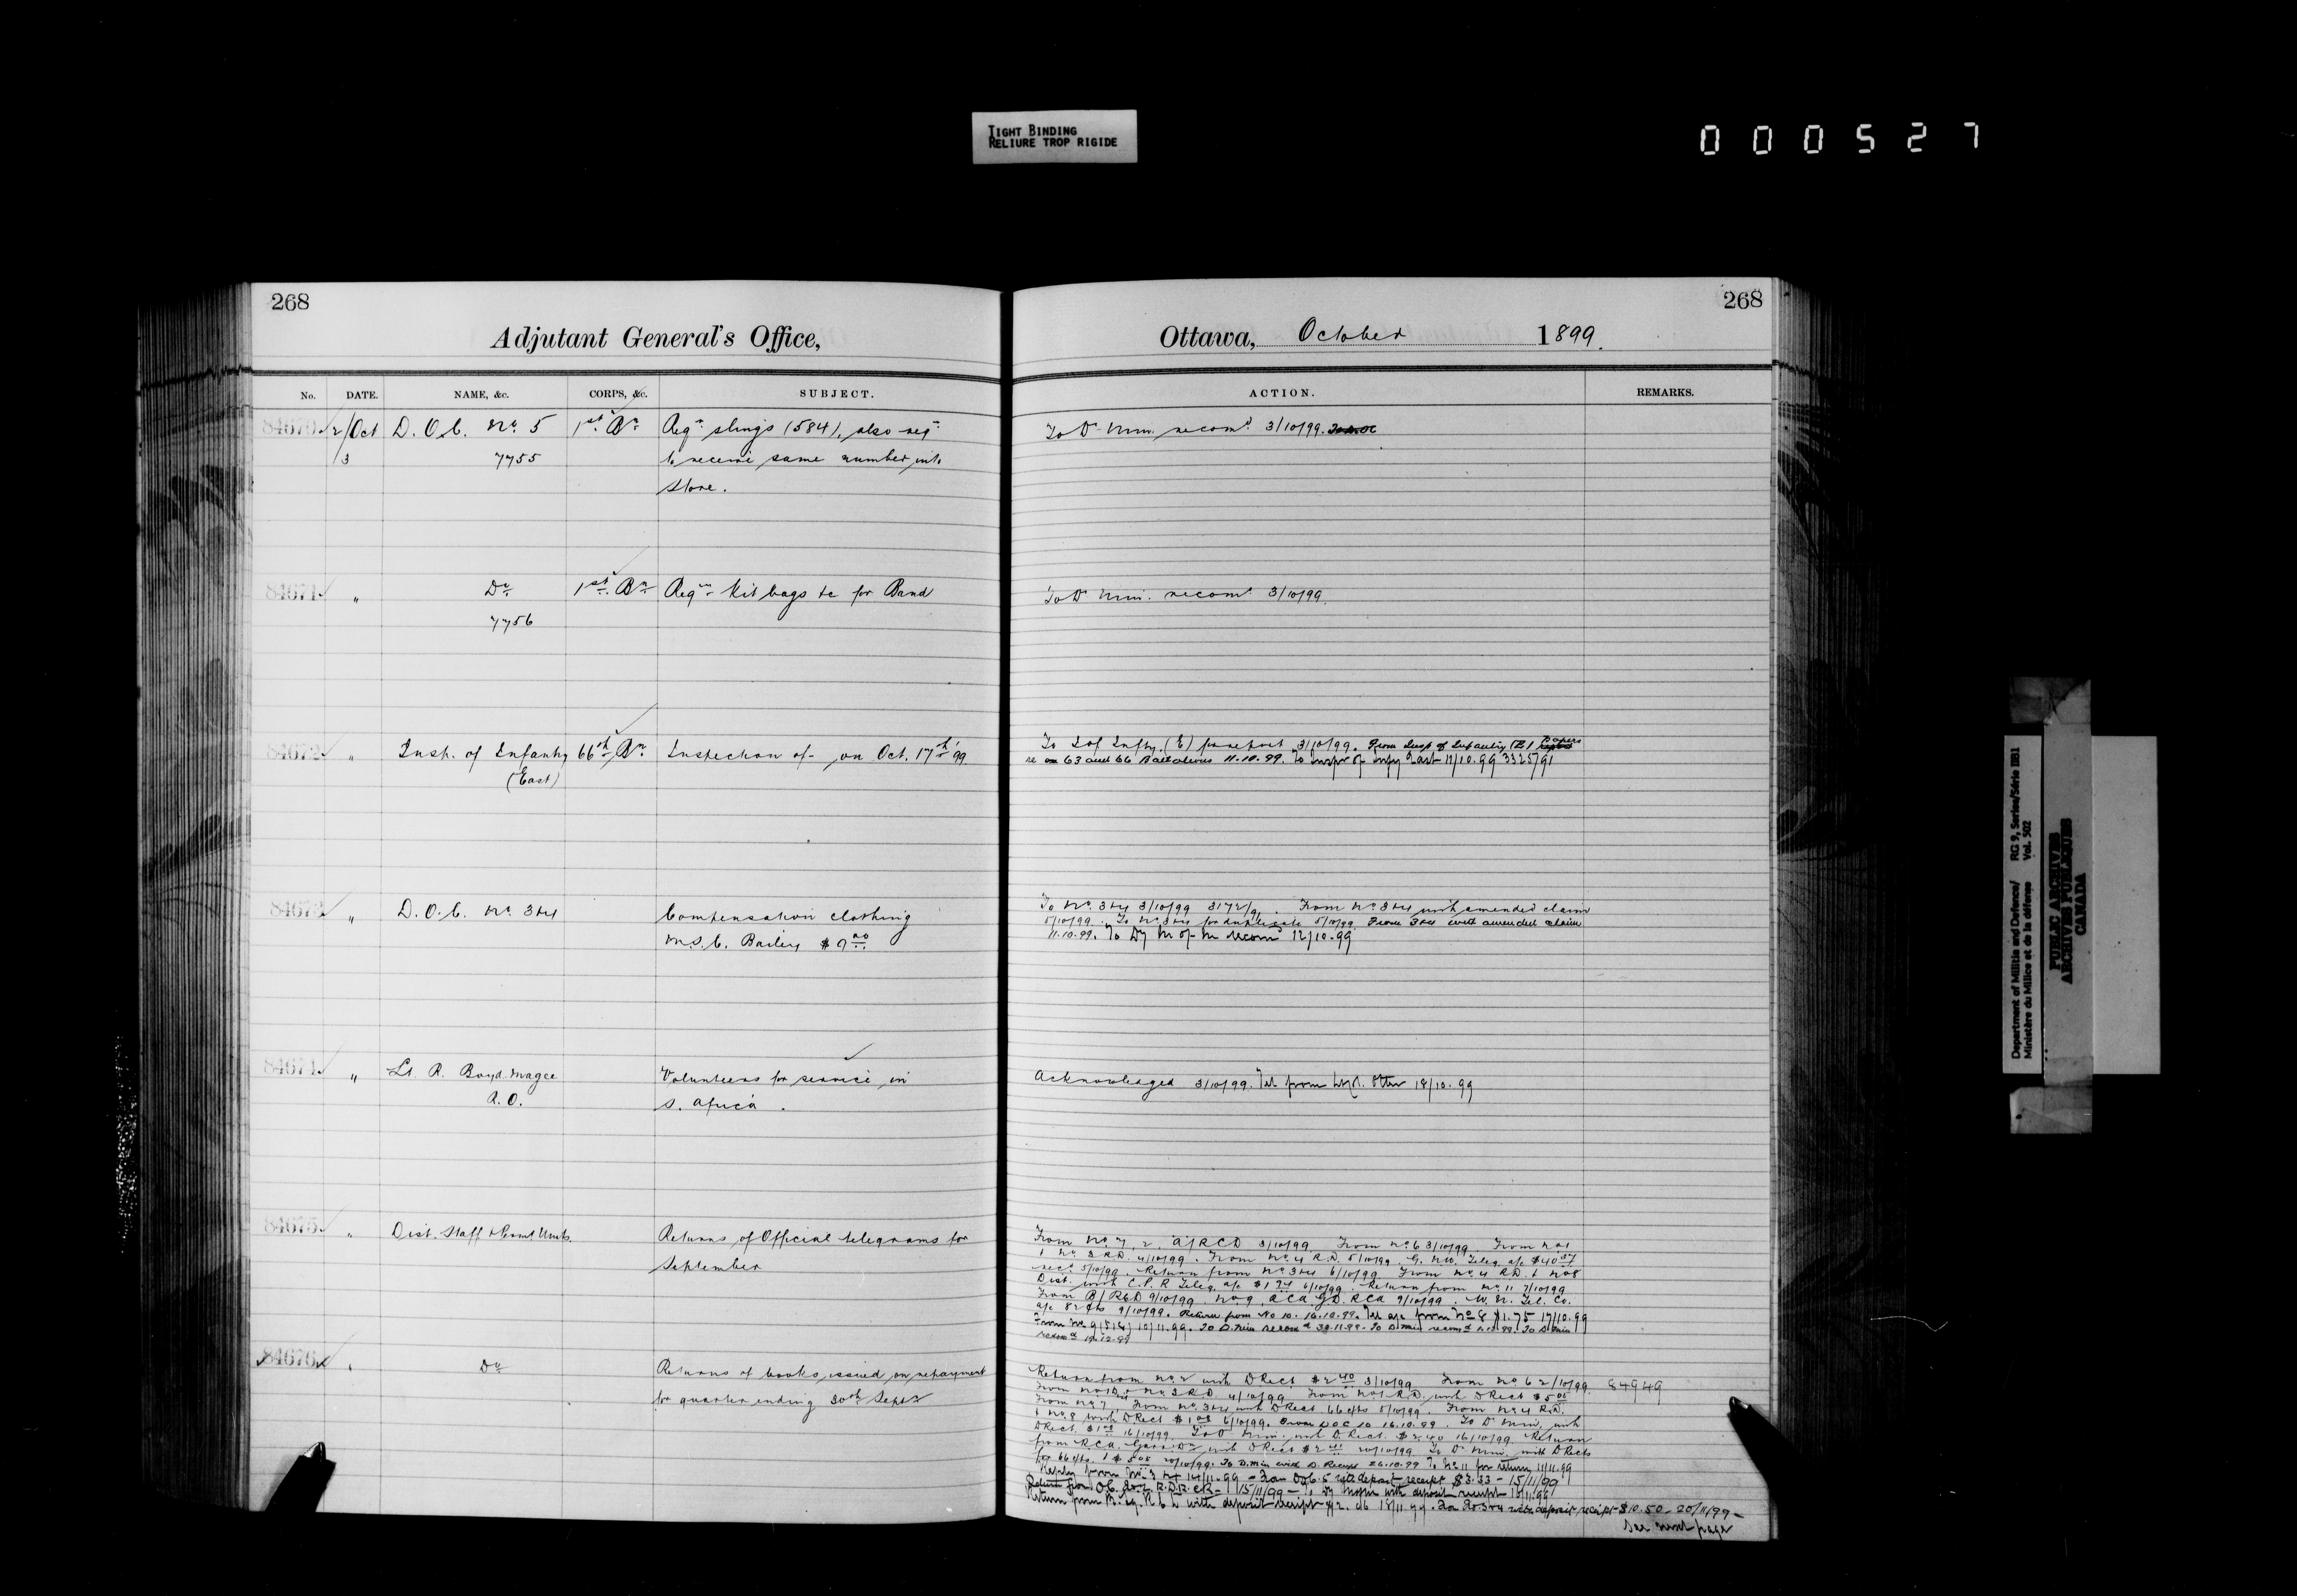 TIGHT BINDING
RELIURE TROP RIGIDE
000527
268
Adjutant General's Office,
No. DATE. NAME, &c. CORPS, &c. SUBJECT.
84670 2/Oct D. O. C. No. 5 1st Bn Reqn slings (584), also reqn
3 7755 to receive same number into
store.
84671 " Do 1st Bn Reqn Kit bags &c for Band
7756
84672 " Insp. of Infantry 66th Bn Inspection of - on Oct. 17th '99.
(East)
84673 " D. O. C. No. 3 & 4 Compensation clothing
M.S.C. Bailey $
84674 " Lt. R. Boyd Magee Volunteers for service in
R. O. S. Africa.
84675 " Dist. Staff & Permt Units. Returns of Official telegrams for
September
84676 " Do Returns of books issued on repayment
for quarter ending 30th Sept
268
Ottawa, October 1899.
ACTION. REMARKS.
To D. Min. recomd 3/10/99.
To D. Min. recomd 3/10/99.
To I of Infty. (E) for report 3/10/99. From Insp of Infantry (E) Papers
re 63 and 66 Battalions 11.10.99. To Inspr of Infy East 12/10.99 332579
To No. 3 & 4 3/10/99 3172/91. From No. 3 & 4 with amended claim
5/10/99. To No. 3 & 4 for duplicate 5/10/99. From 3 & 4 with amended claim
11.10.99. To Dy M of M recomd 12/10.99
Acknowledged 3/10/99. Tel from Otter 18/10.99
From No. 7, 2, A/RCD 3/10/99. From No. 6 3/10/99. From No 1
& No. 3 R.D. 4/10/99. From No. 4 R.D. 5/10/99. G. N.W. Teleg. a/c $40
recd 5/10/99. Return from No. 3 & 4 6/10/99. From No. 4 R.D. & No 8
Dist. with C.P.R. Teleg. a/c $1 6/10/99. Return from No. 11 7/10/99
From B/RCD 9/10/99. No. 9 RCA 9/10/99. W. U. Tel. Co.
a/c 82 cts 9/10/99. Return from No 10. 16.10.99. Tel a/c from No 8 $1.75 17/10.99
From No. 9 11.99. To D. Min recomd 30.11.99. To D. Min recomd 99. To D Min
recomd 19.12.99
Return from No. 2 with D Rect $2.40 3/10/99. From No. 6 2/10/99. 84949
From No. 3 R.D. 4/10/99. From No 1 R.D. with D Rect $5
From No. 7. From No. 3 & 4 with D Rect. 66 cts 5/10/99. From No. 4 R.D.
& No. 8 with D Rect $1 6/10/99. From DOC 10 16.10.99. To D. Min. with
D Rect. $1 16/10/99. To D. Min. with D Rect. $2.40 16/10/99. Return
from RCA. with D Rect $2 20/10/99. To D. Min. with D Rects
for 66 cts. & $5 20/10/99. To D. Min with D. Receipt 26.10.99 To No 11 for return 11/11.99
Reply from 14/11.99 - From DOC. 5 with deposit receipt $3.33 - 15/11/99
Return from O.C. 15/11/99 - To Dy with deposit receipt 15/11/99
Return from with deposit receipt 18/11.99. From No 3 & 4 with deposit receipt $10.50 - 20/11/99 -
See next page
Department of Militia and Defence/ RG 9, Series/Série IIB1
Ministère du Milice et de la défense Vol. 502
PUBLIC ARCHIVES
ARCHIVES PUBLIQUES
CANADA